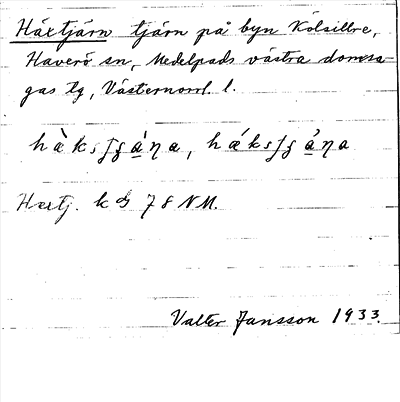 Häxtjärn tjärn på byn Kölsillre,
Haverö sn, Medelpads västra domsa-
gas tg, Västernorrl. l.
Hextj. kbl 78 NM.
Valter Jansson 1933.